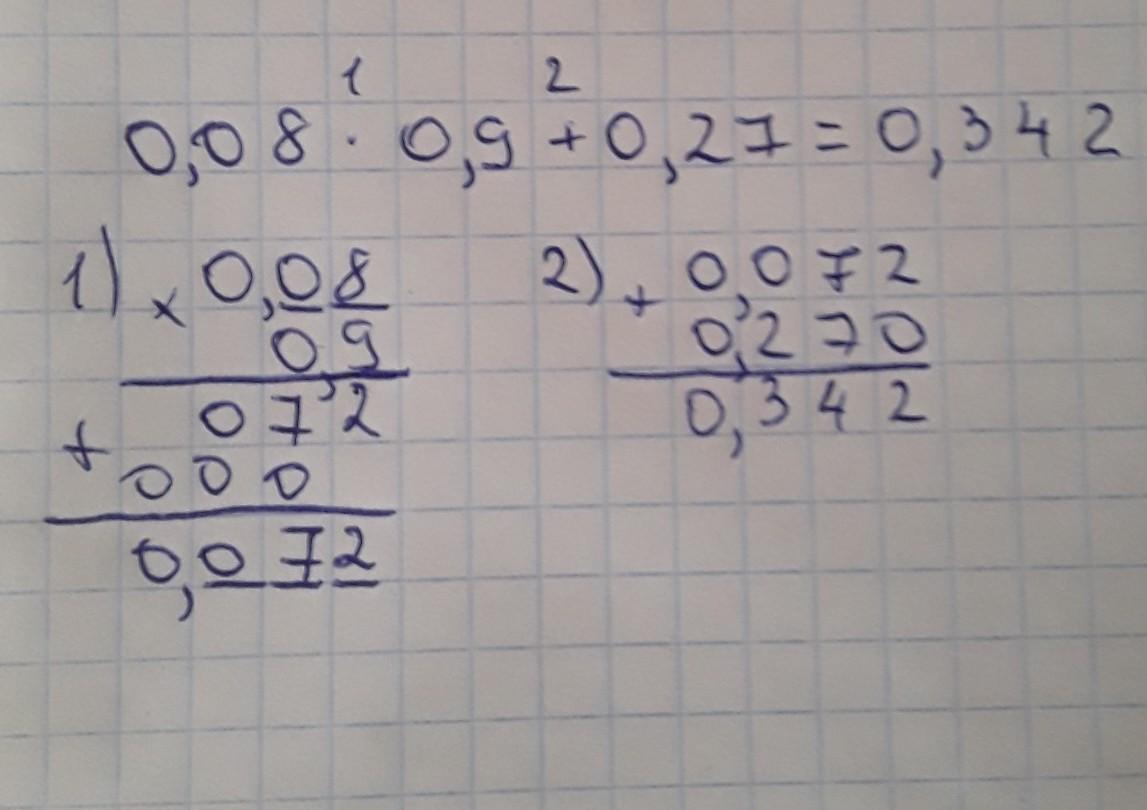 1 2
0,08 · 0,9 + 0,27 = 0,342
1) × 0,08
09
072
+ 000
0,072
2) + 0,072
0,270
0,342